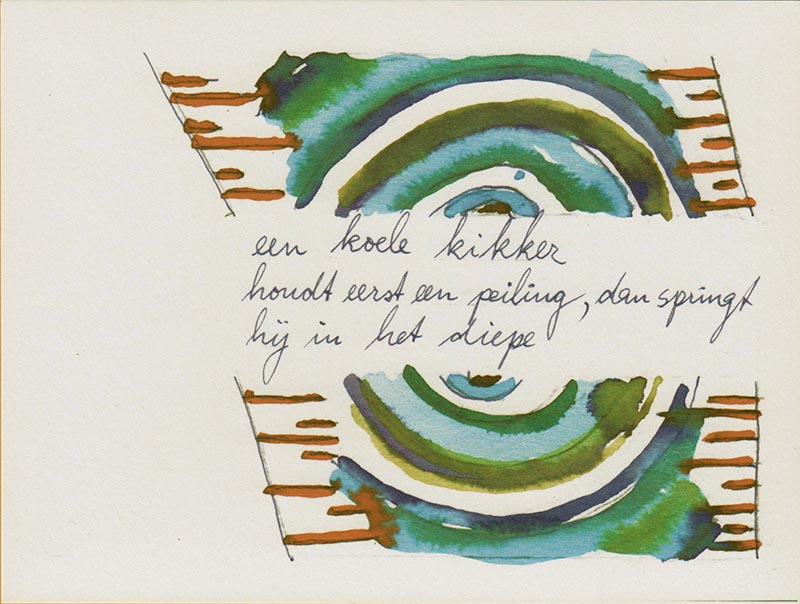 een koele kikker
houdt eerst een peiling, dan springt
hij in het diepe